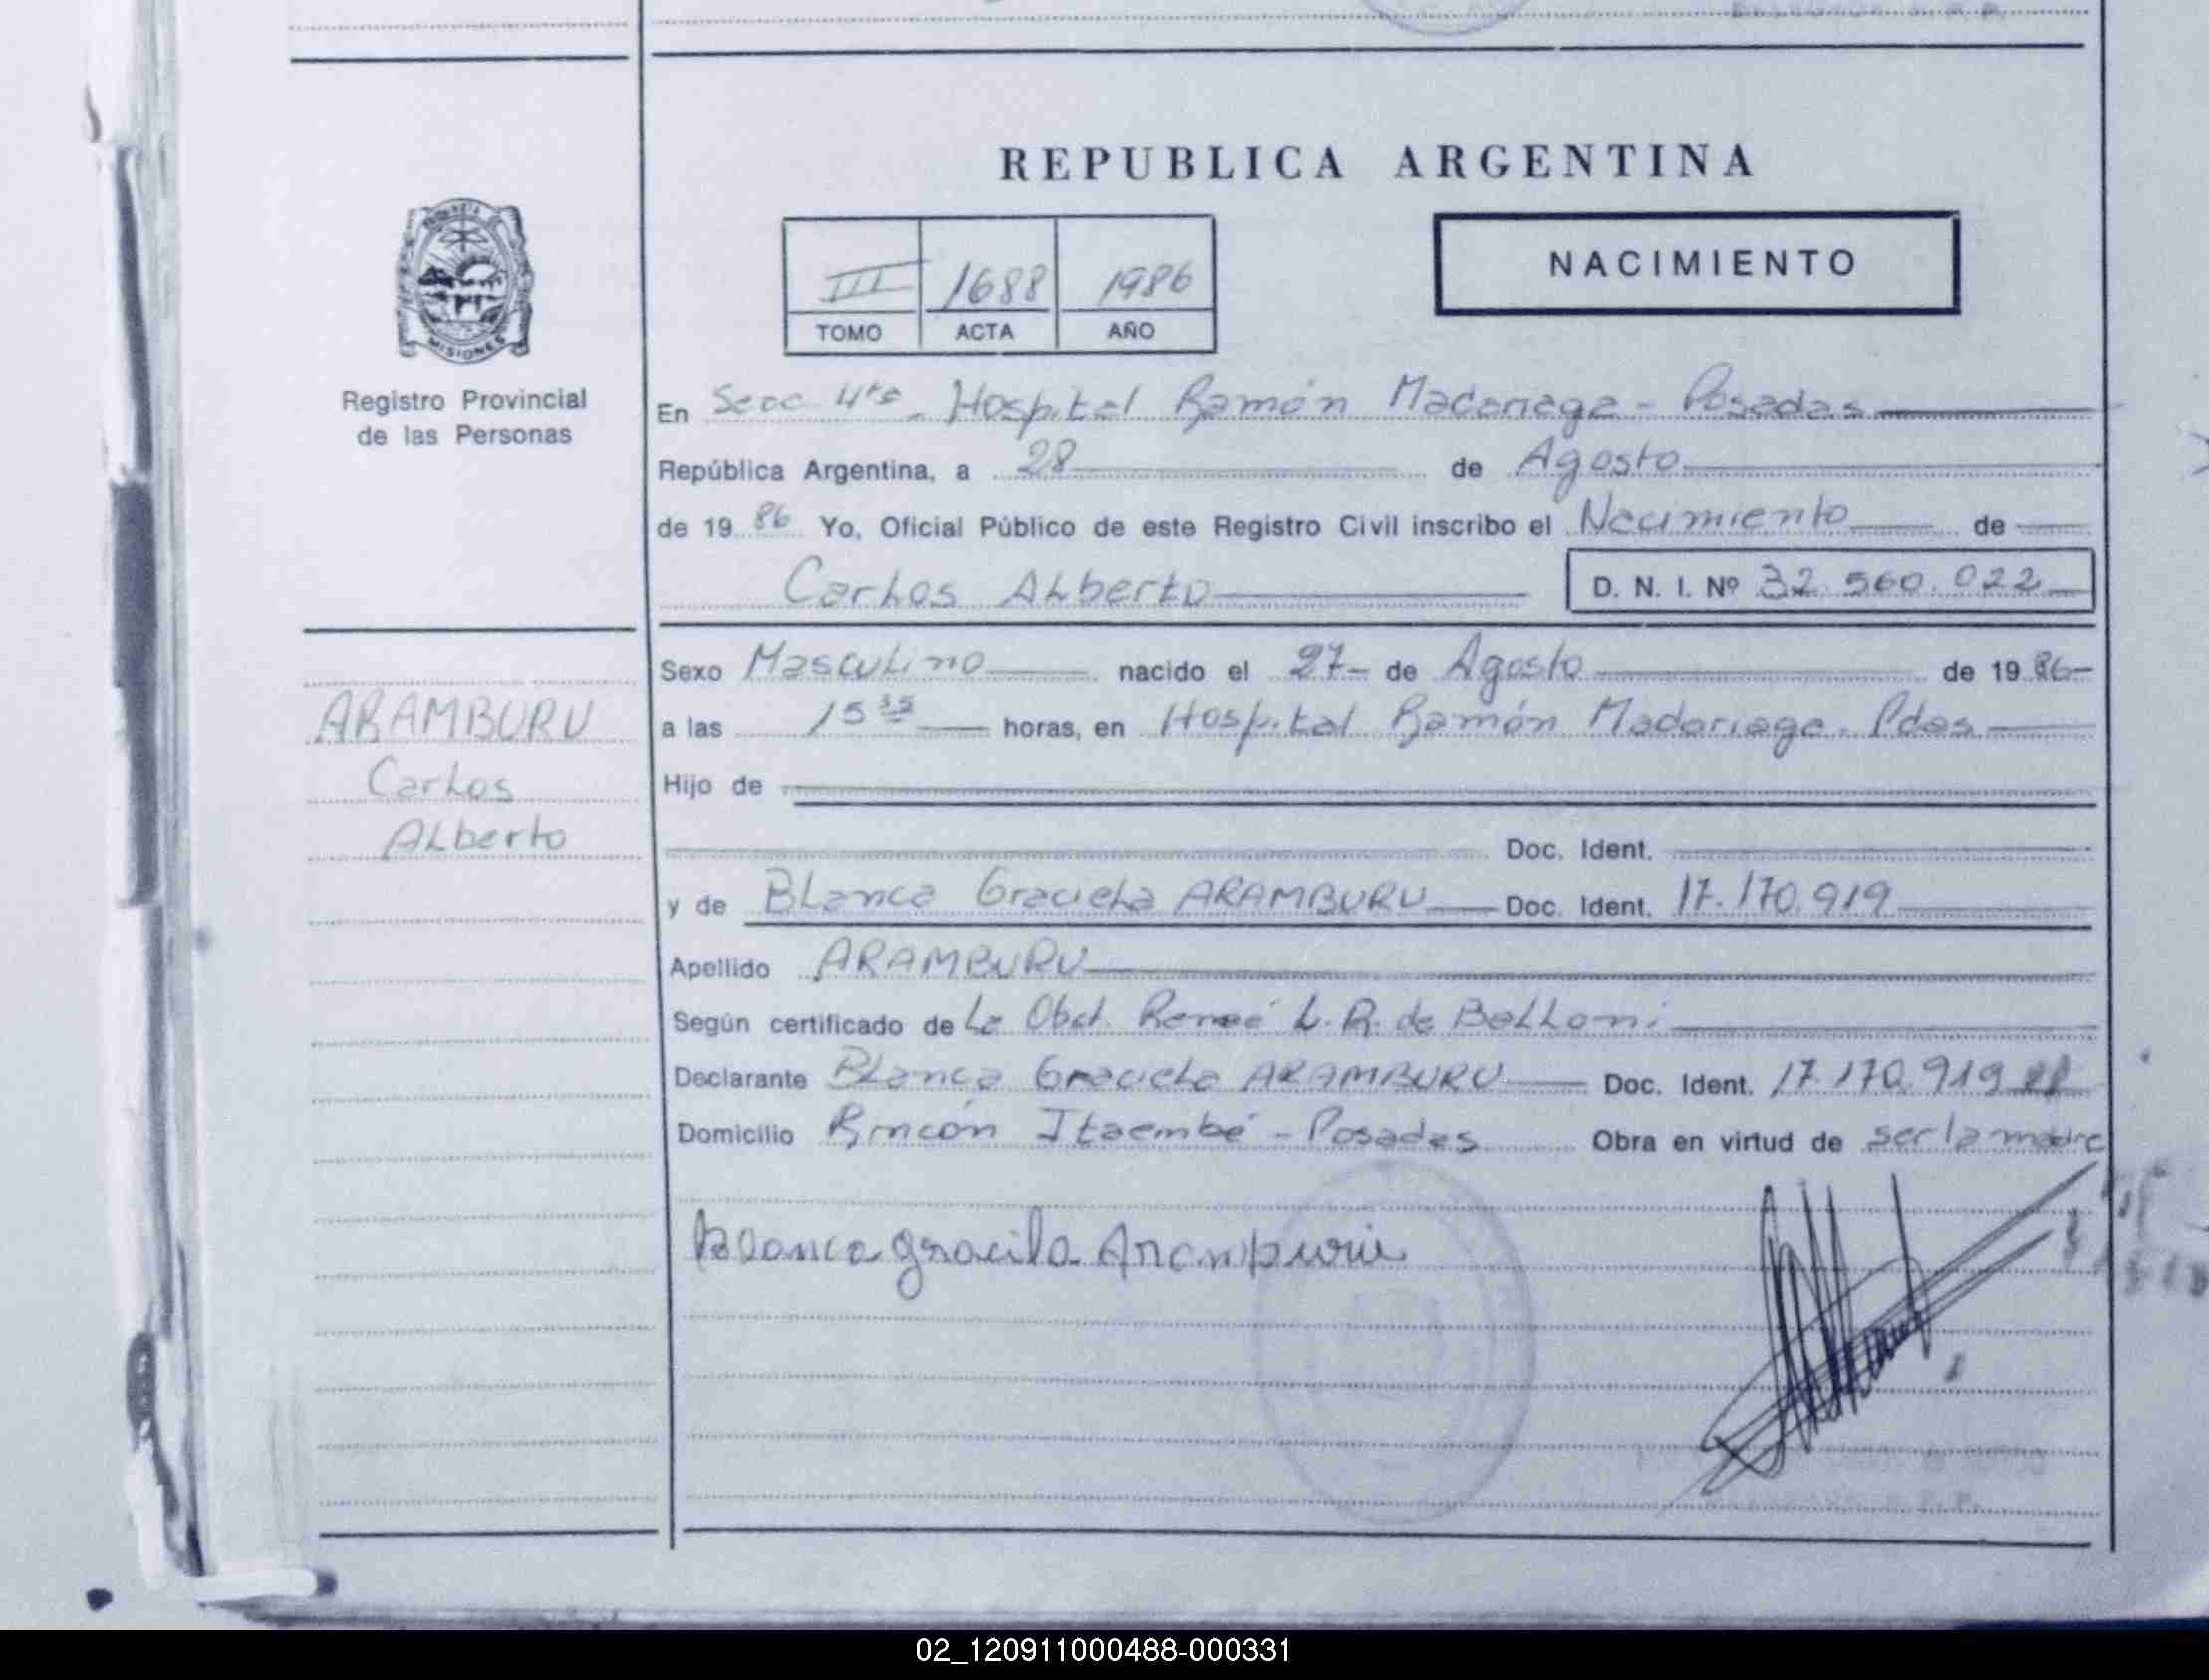 REPUBLICA ARGENTINA
III 1688 1986
TOMO ACTA AÑO
NACIMIENTO
MISIONES
Registro Provincial
de las Personas
En Secc 4ta. Hospital Ramón Madariaga - Posadas
República Argentina, a 28 de Agosto
de 19 86 Yo, Oficial Público de este Registro Civil inscribo el Nacimiento de
Carlos Alberto D. N. I. Nº 32.560.022
Sexo Masculino nacido el 27 de Agosto de 19 86
ARAMBURU
Carlos
Alberto
a las 15 35 horas, en Hospital Ramón Madariaga. Pdas
Hijo de
Doc. Ident.
y de Blanca Graciela ARAMBURU Doc. Ident. 17.170.919
Apellido ARAMBURU
Según certificado de La Obst. Reneé L. R. de Belloni
Declarante Blanca Graciela ARAMBURU Doc. Ident. 17.170.919
Domicilio Rincón Itaembé - Posadas Obra en virtud de ser la madre
Blanca gracila Aramburu
02_120911000488-000331